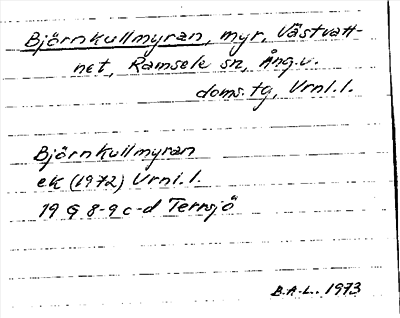 Björnkullmyran, myr, Västvatt-
net, Ramsele sn, Ång.v.
doms.tg, Vrnl.l.
Björnkullmyran
ek (1972) Vrnl.l.
19 G 8-9 c-d Terrsjö
B.A-L. 1973